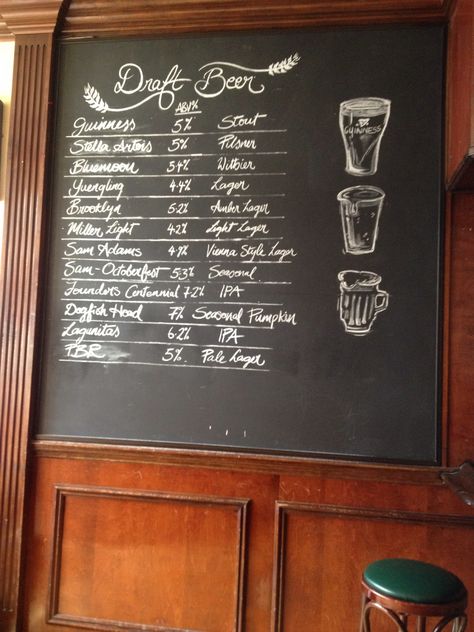 Draft Beer
ABV%
Guinness 5% Stout
Stella Artois 5% Pilsner
Bluemoon 5.4% Witbier
Yuengling 4.4% Lager
Brooklyn 5.2% Amber Lager
Miller Light 4.2% Light Lager
Sam Adams 4.9% Vienna Style Lager
Sam-Octoberfest 5.3% Seasonal
Founder's Centennial 7.2% IPA
Dogfish Head 7% Seasonal Pumpkin
Lagunitas 6.2% IPA
PBR 5% Pale Lager
GUINNESS